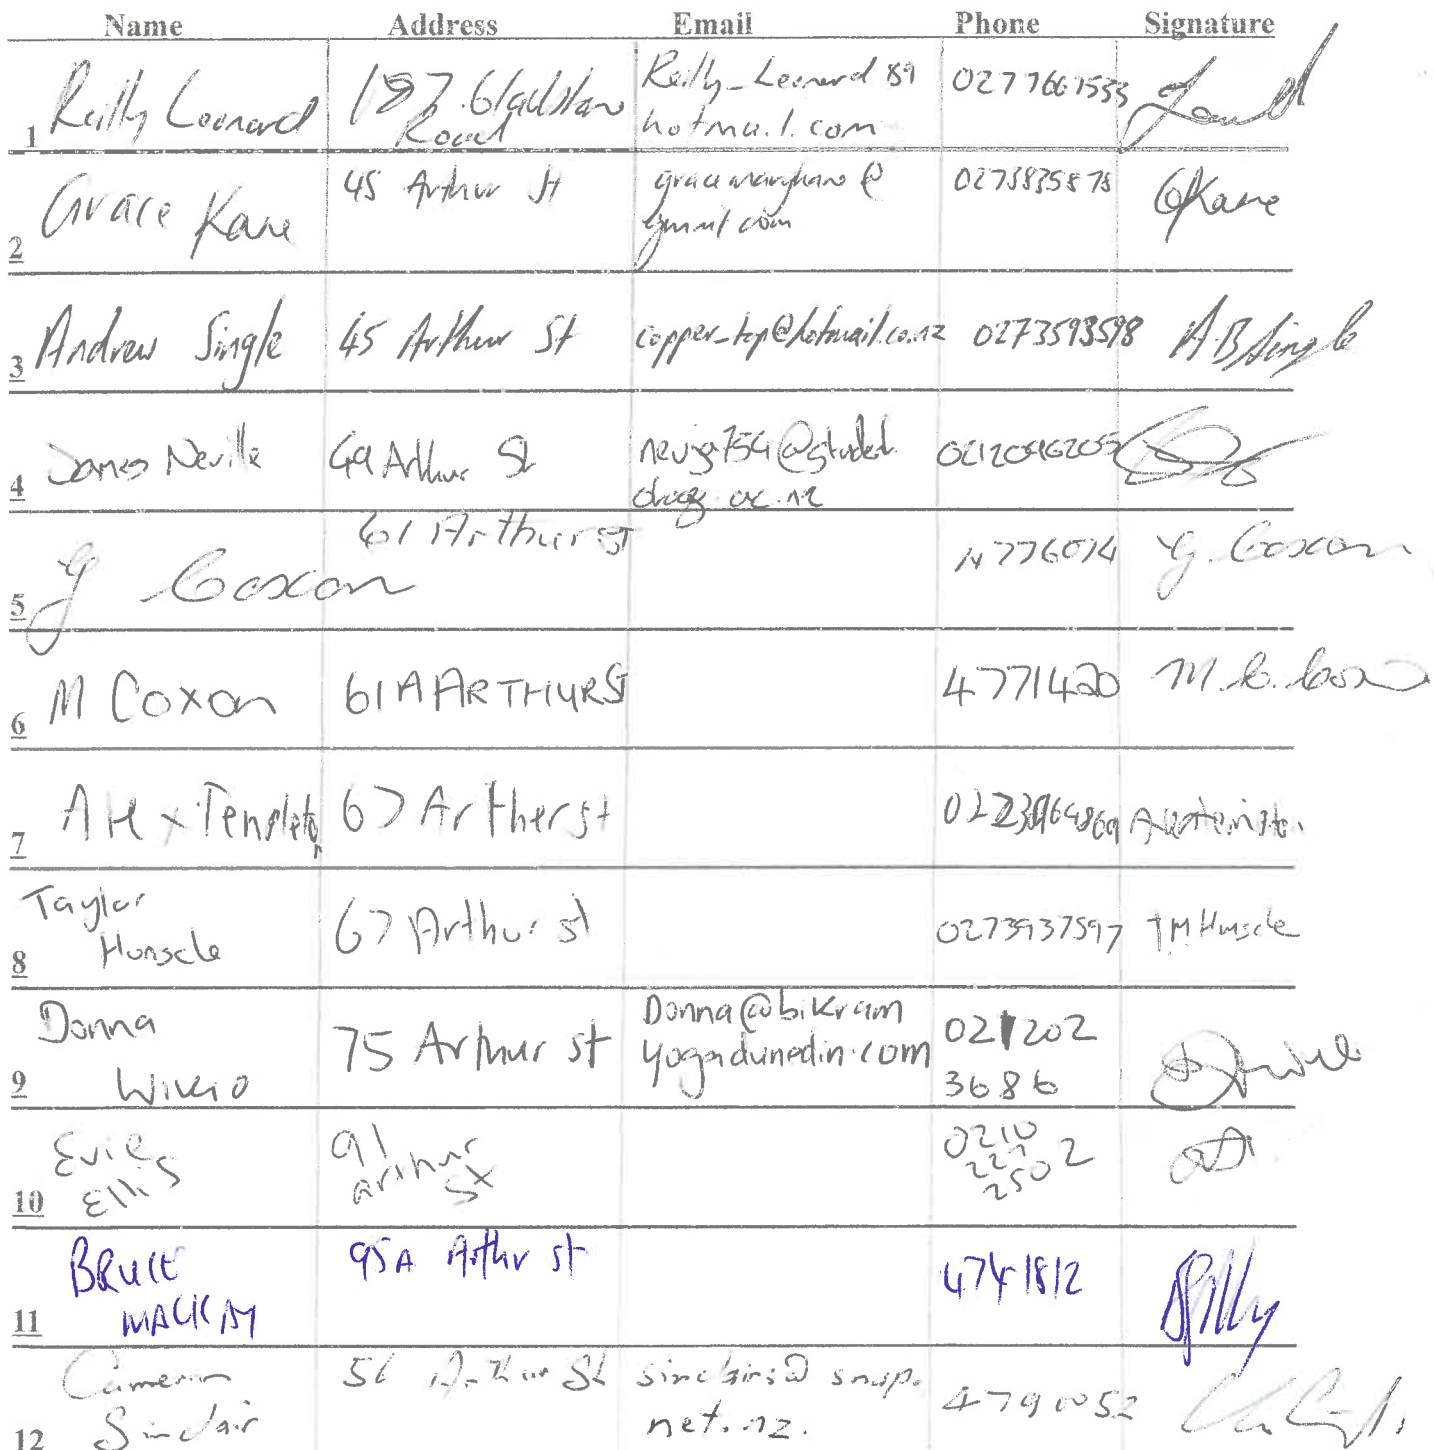 Name Address Email Phone Signature
1 Reilly Leonard 187 Gladstone Road Reilly_Leonard 89 hotmail.com
2 Grace Kane 45 Arthur St @ gmail com 0275835875 GKane
3 Andrew Single 45 Arthur St copper_top@hotmail.co.nz 0273593598 A.B Single
4 James Neville 49 Arthur St
5 G Coxon 61 Arthur st G. Coxon
6 M Coxon 61A ARTHUR St 4771420
7 Alex Templeton 67 Arther st
8 Taylor 67 Arthur st 0273937597
9 Donna 75 Arthur st Donna@bikram yogadunedin.com 021202 3686
10 Evie Ellis 91 arthur st 0210 227 2502
11 BRUCE MACKAY 95A Arthur st 4741812
12 Cameron Sinclair 56 Arthur St sinclairs@ snap. net.nz. 4790052